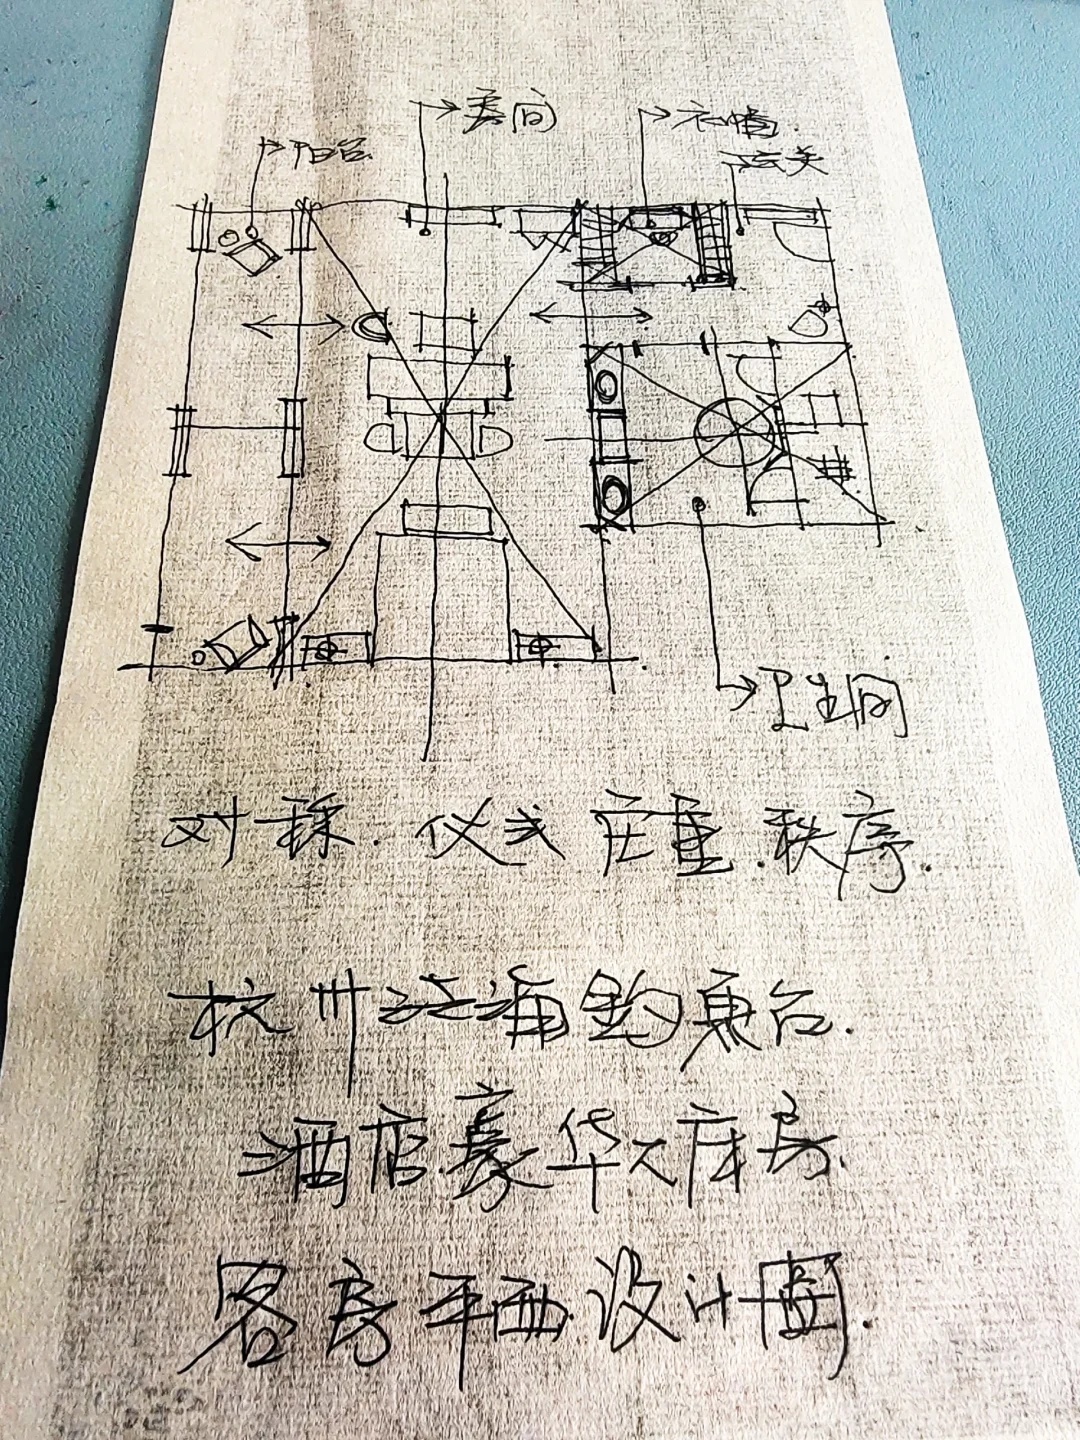 房间
衣帽
阳台
玄关
卫生间
对称.仪式 庄重.秩序.
杭州泛海钓鱼台.
酒店.豪华大床房.
客房平面.设计图.